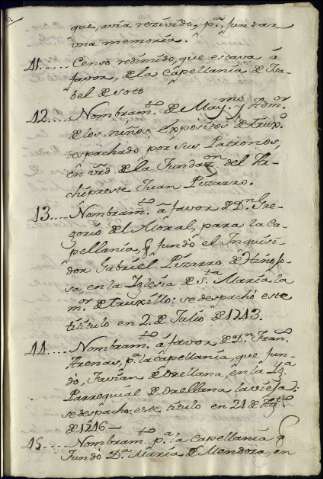 que, avia rezivido, pª. fundar
una memoria.
11.... Censo redimido, que estava á
favor, de la Capellania de Isa-
bel de Soto
12.... Nombram.to de May.mo y
de los niños expositos de Trux.o
espachado por sus Patronos,
en vrd. de la Fundaz.on del
Juan Pizarro.
13.... Nombram.to á favor de D.n Gre-
gorio de el Moral, para la Ca-
pellania, q fundó el Inquisi-
dor Gabriel Pizarro de Hinojo-
sa, en la Iglesia de S.ta Maria la
m.or de Truxillo: se despachó este
titulo en 2. de Julio de 1713.
14.... Nombram.to á favor de D.n Fran.co
Arenas, p.a la Capellania, que fun-
dó, Juan de Orellana, en la Ig.a
Parroquial de Orellana la vieja:
se despachó, este, titulo en 21 de
de 1716
15.. Nombram.to p.a la Capellania q
fundó D.a Maria de Mendoza, en